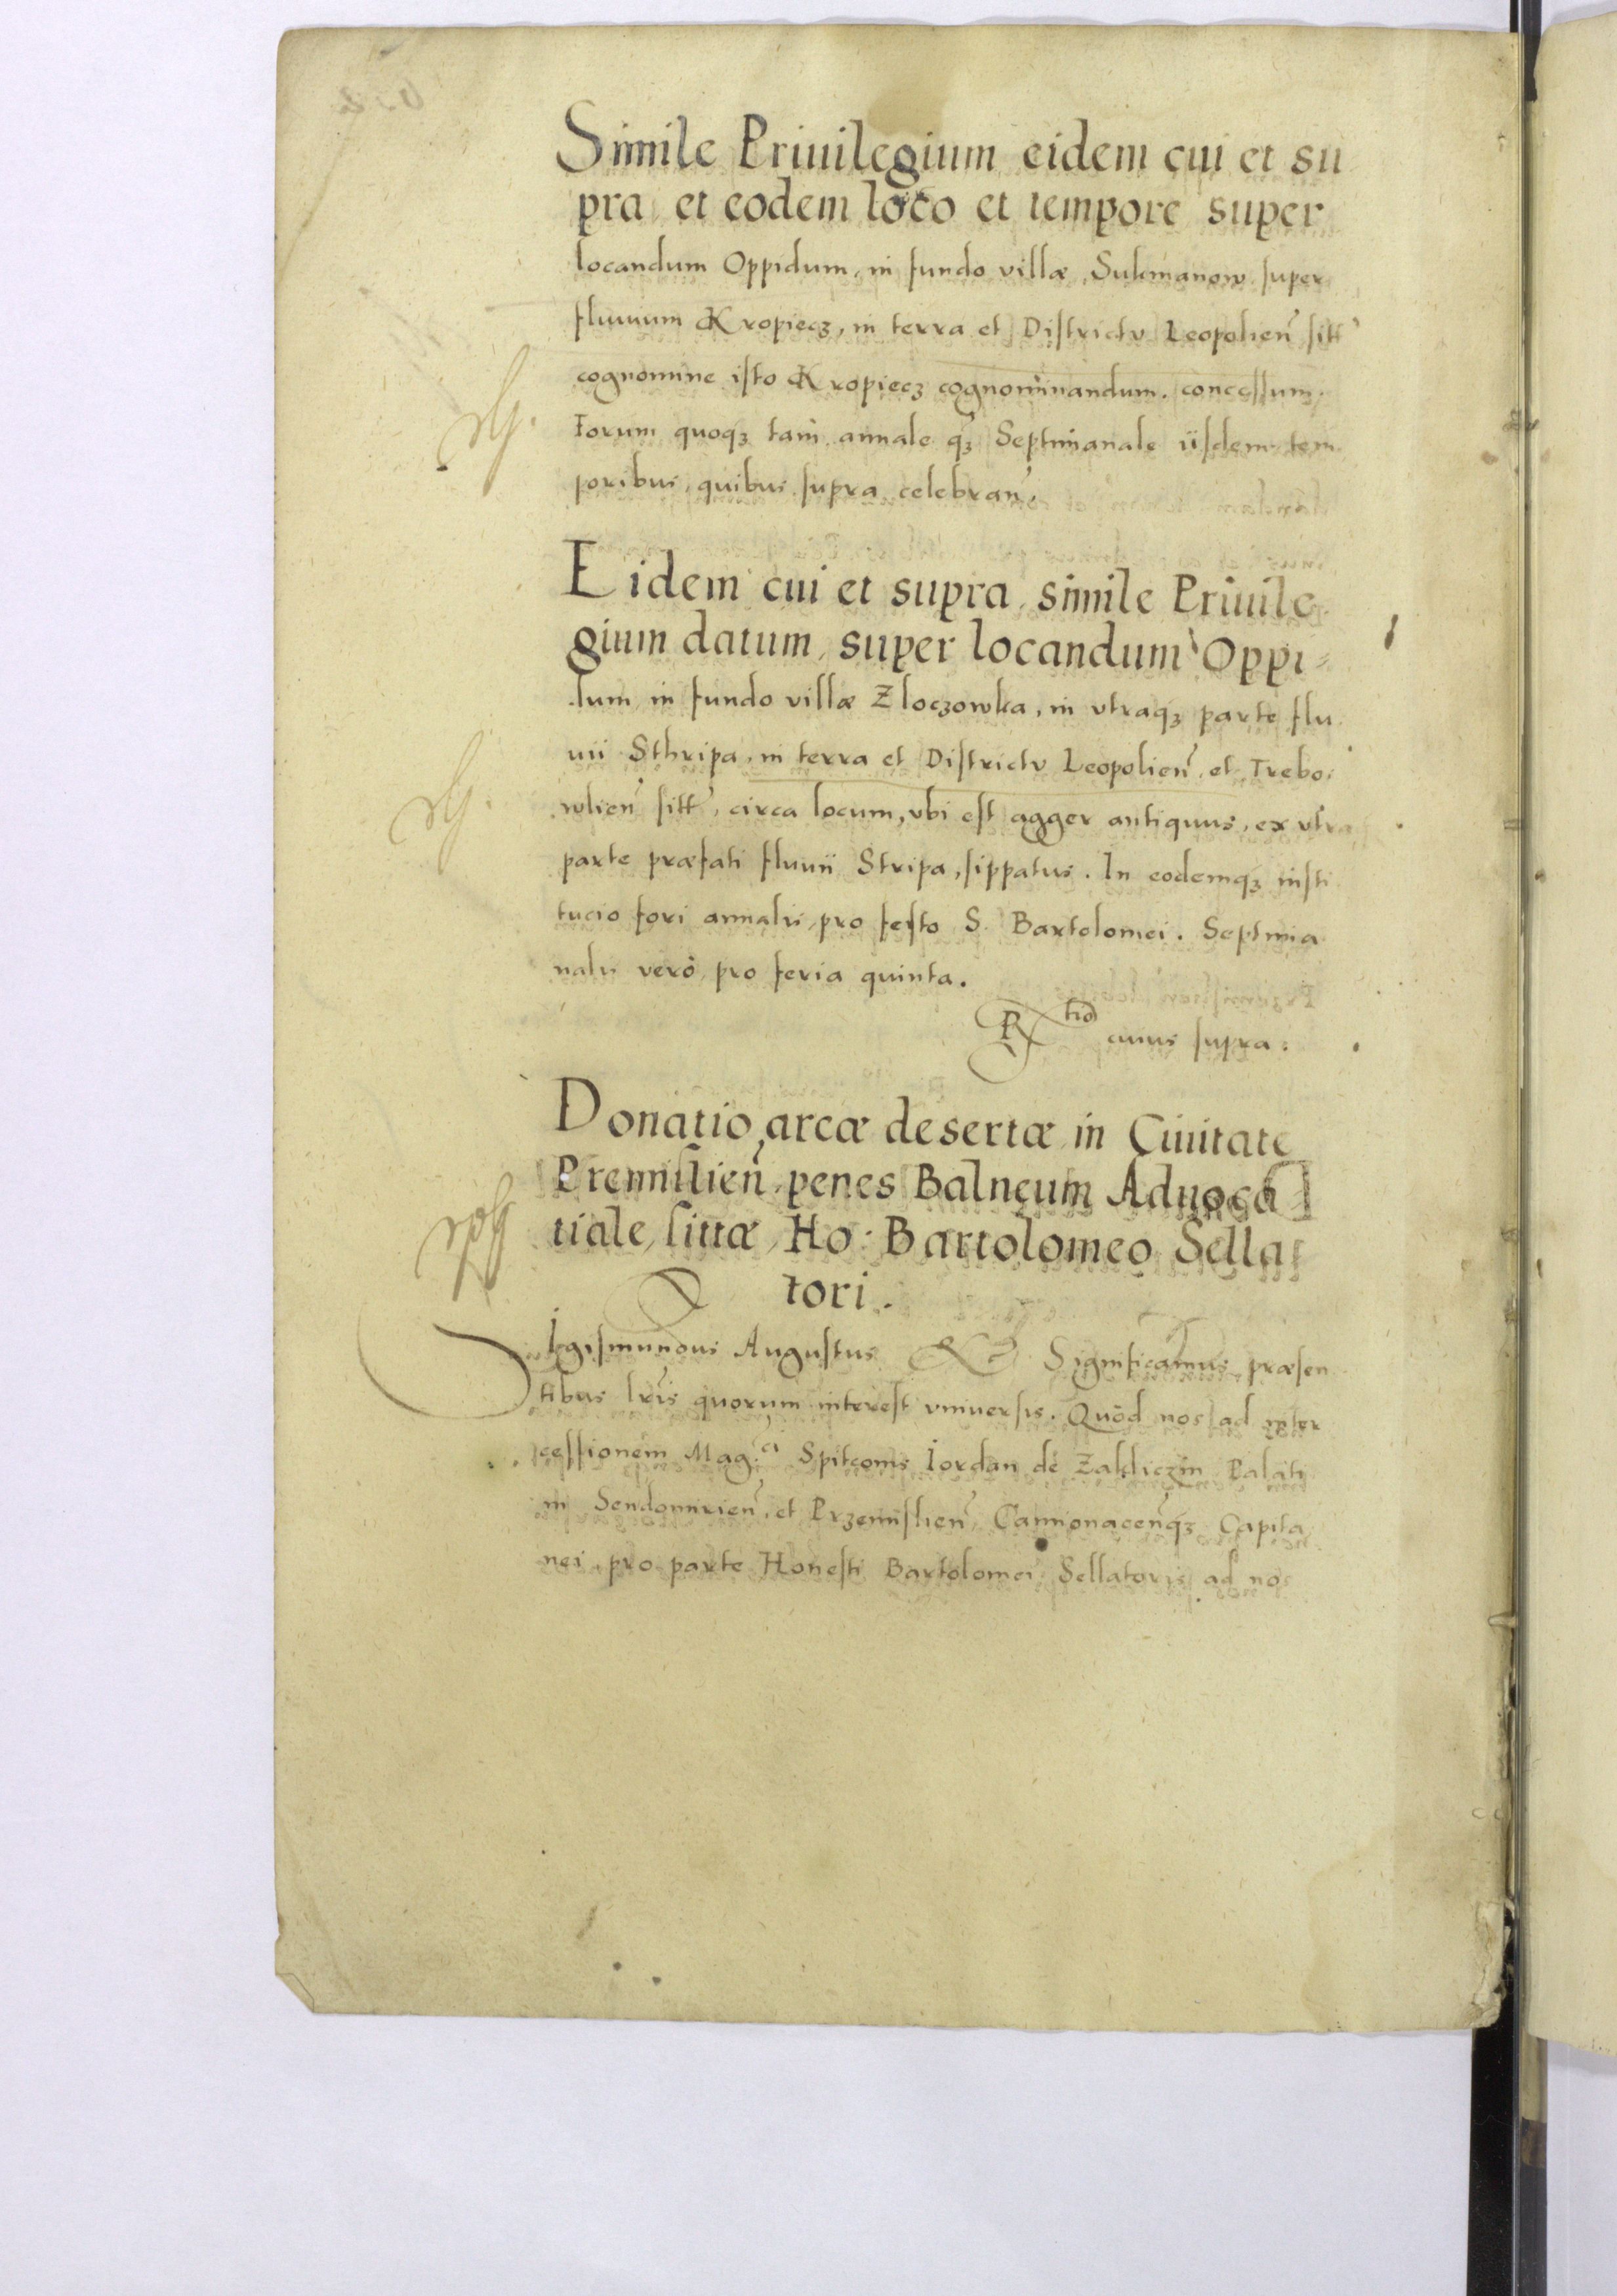 Simile Priuilegium eidem cui et su
pra et eodem loco et tempore super
locandum Oppidum, in fundo villæ Sulimanow super
fluuium Kropiecz, in terra et Districtu Leopolien̄ sitt
cognomine isto Kropiecz cognominandum. concessum.
Forum quoqꝫ tam annale qꝫ Septimanale iisdem tem
poribus, quibus supra celebran̄.
Eidem cui et supra, simile Priuile
gium datum, super locandum Oppi
dum in fundo villæ Zloczowka, in vtraqꝫ parte flu
uii Sthripa, in terra et Districtu Leopolien̄ et Trebo
wlien̄ sitt, circa locum, vbi est agger antiquus, ex vtra
parte præfati fluuii Stripa, sippatus. In eodemqꝫ insti
tucio fori annalis, pro festo S. Bartolomei. Septima
nalis verò pro feria quinta.
Rtio cuius supra.
Donatio areæ desertæ in Ciuitate
Premislien̄ penes Balneum Aduoca
tiale, sittæ, Ho: Bartolomeo Sella
tori.
Sigismundus Augustus &c Significamus præsen
tibus lris quorum interest vniuersis. Quòd nos ad inter
cessionem Mag:ci Spitconis Iordan de Zakliczin Palati
ni Sendomirien̄, et Przemislien̄ Camionacen̄qꝫ Capita
nei, pro parte Honesti Bartolomei Sellatoris ad nos